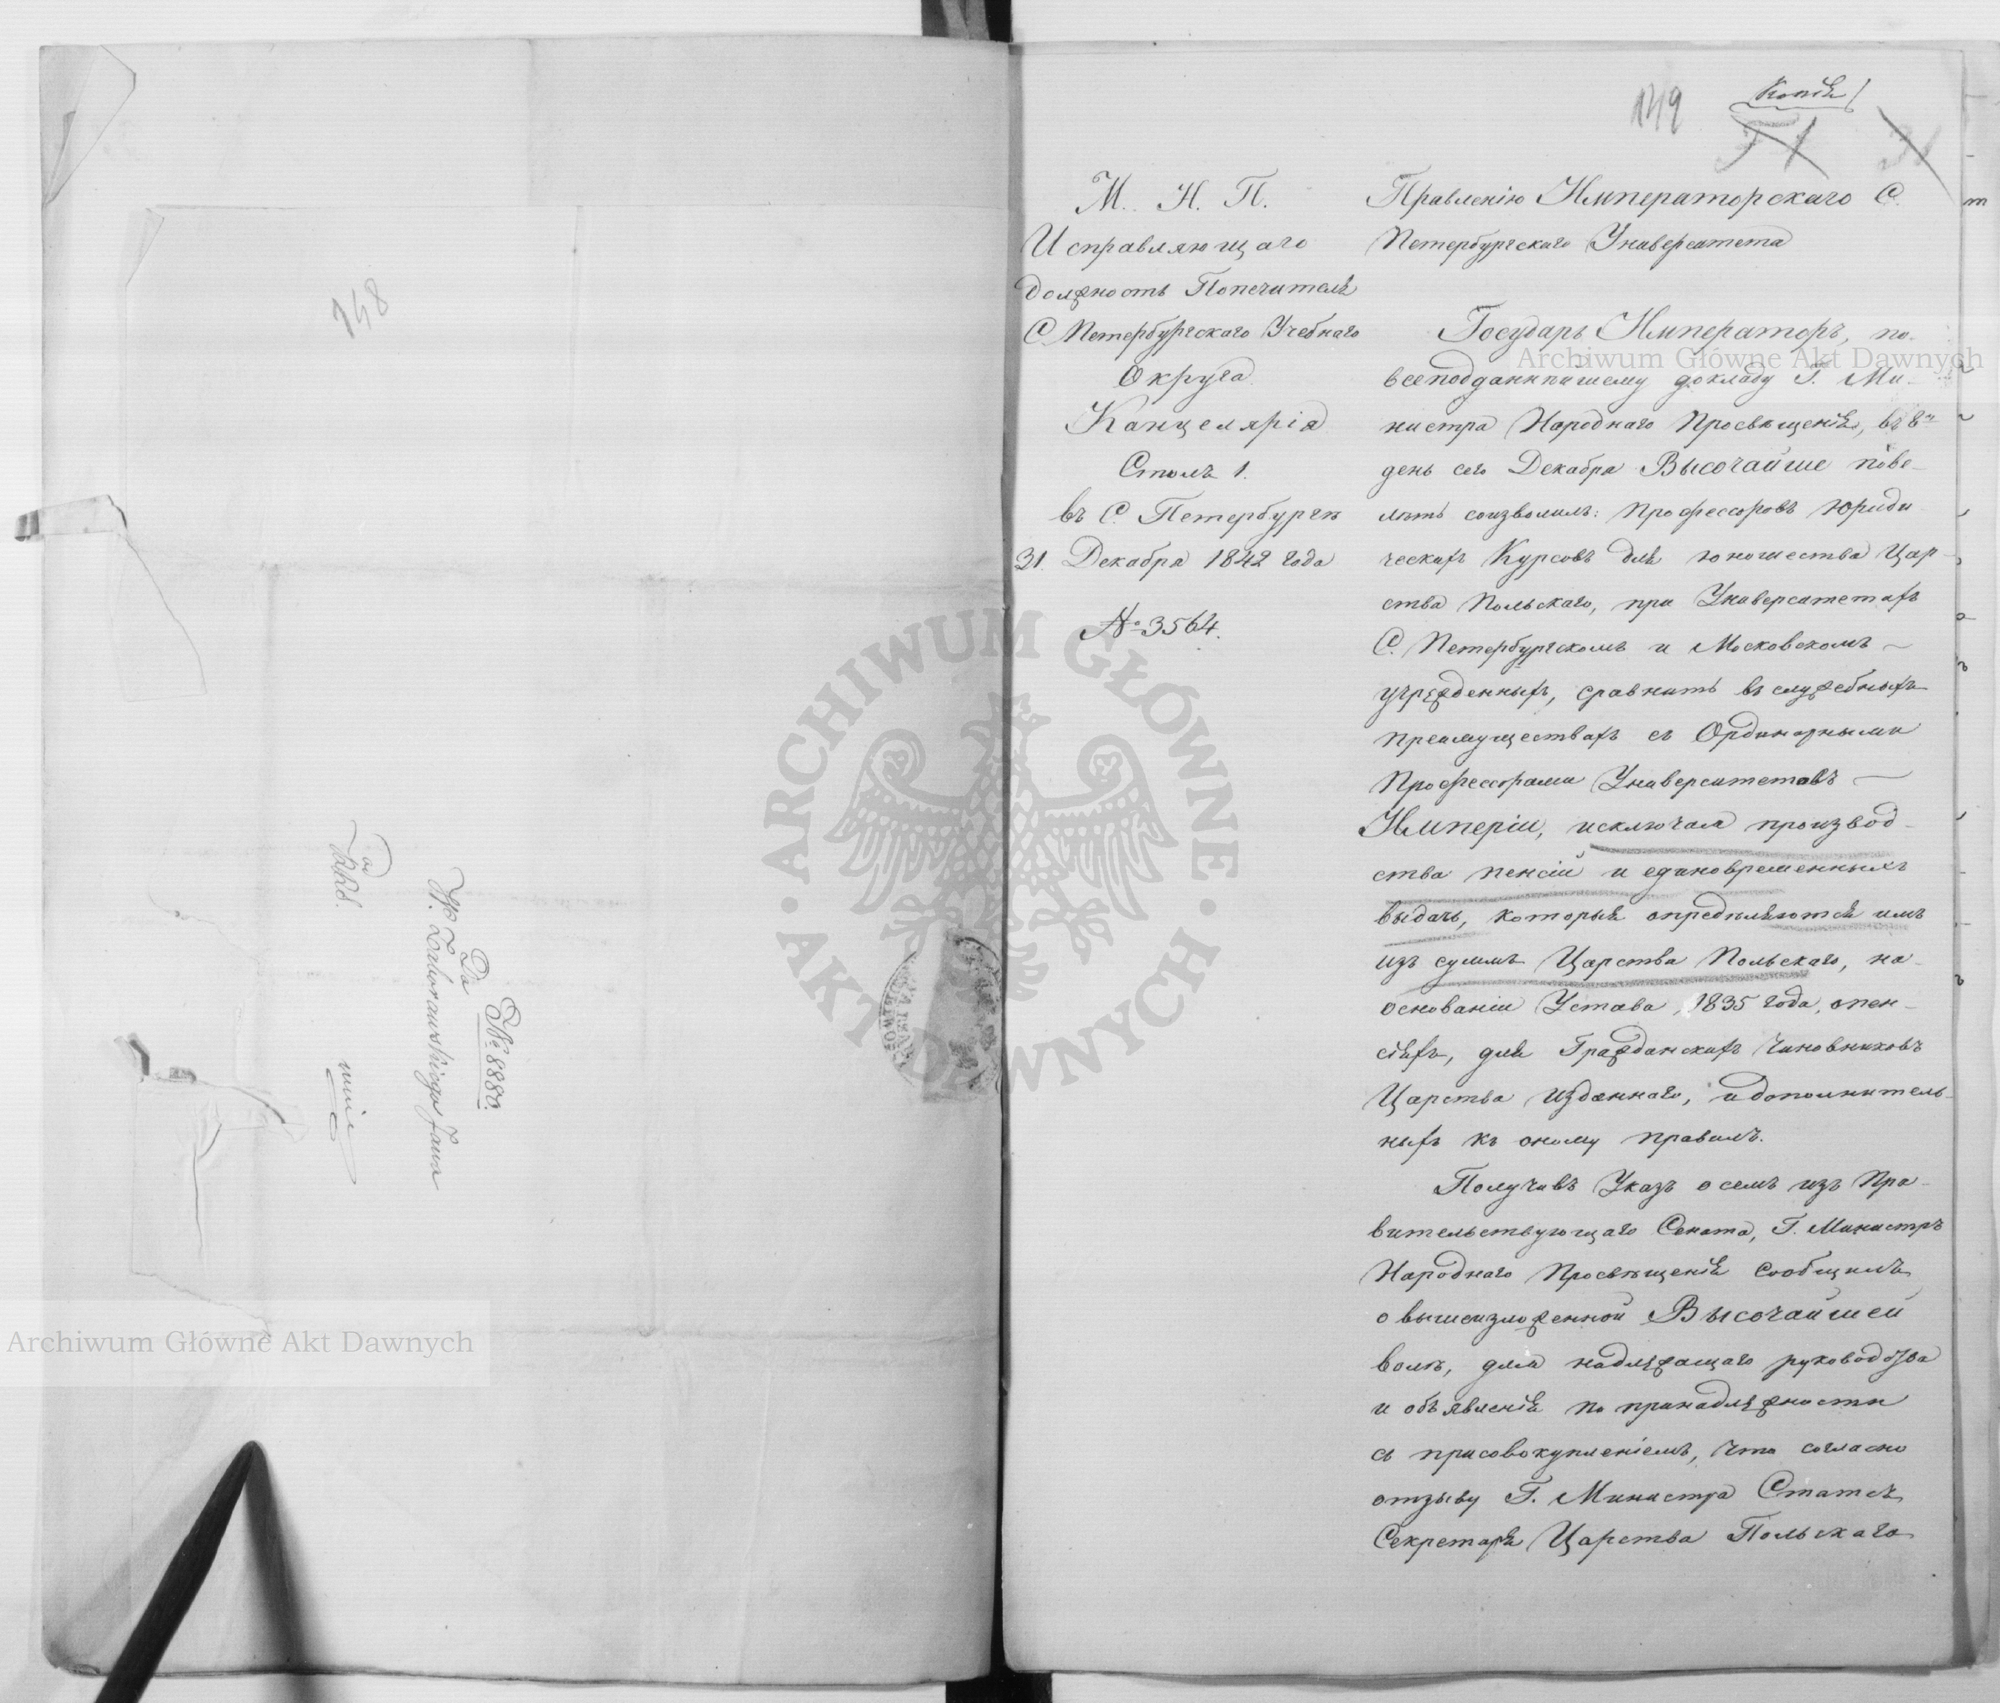 148
Do
№ 8880.
Wp. Zaborowskiego Jana
w
mie
Копія
149
М. Н. П.
Исправляющаго
должность Попечителя
С. Петербургскаго Учебнаго
Округа
Канцелярія
Столъ 1.
въ С. Петербургѣ
31 Декабря 1842 года
№ 3564.
Правленію Императорскаго С.
Петербургскаго Университета
Государь Императоръ, по
всеподданнѣйшему докладу Г. Ми-
нистра Народнаго Просвѣщенія, въ 8й
день сего Декабря Высочайше пове-
лѣть соизволилъ: Профессоровъ Юриди
ческихъ Курсовъ для юношества Цар-
ства Польскаго, при Университетахъ
С. Петербургскомъ и Московскомъ
учрежденныхъ, сравнить въ служебныхъ
преимуществахъ съ Ординарными
Профессорами Университетовъ
Имперіи, исключая производ-
ства пенсій и единовременныхъ
выдачъ, которыя опредѣляются имъ
изъ суммъ Царства Польскаго, на
основаніи Устава 1835 года, о пен-
сіяхъ, для Гражданскихъ Чиновниковъ
Царства изданнаго, и дополнитель-
ныхъ къ оному правилъ.
Получивъ Указъ о семъ изъ Пра-
вительствующаго Сената, Г. Министръ
Народнаго Просвѣщенія сообщилъ
о вышеизложенной Высочайшей
волѣ, для надлежащаго руководства
и объявленія по принадлежности
съ присовокупленіемъ, что согласно
отзыву Г. Министра Статсъ
Секретаря Царства Польскаго
Archiwum Główne Akt Dawnych
Archiwum Główne Akt Dawnych
ARCHIWUM GŁÓWNE · AKT DAWNYCH ·